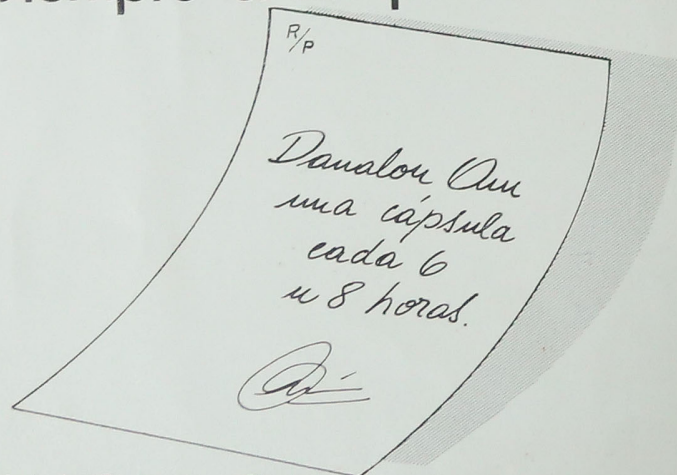 R/P
Danalon Om
una cápsula
cada 6
u 8 horas.